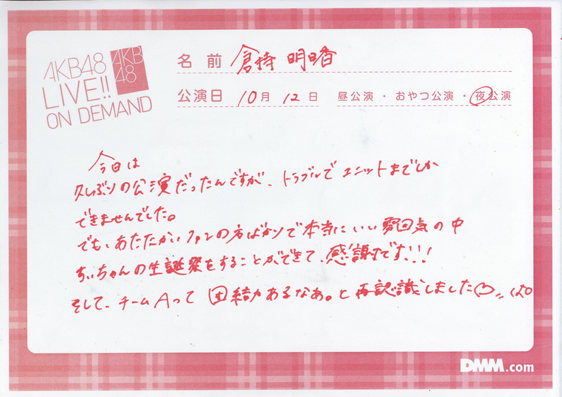 AKB48
LIVE!!
ON DEMAND
AKB
48
名前 倉持 明日香
公演日 10月 12日 昼公演・おやつ公演・夜公演
今日は
久しぶりの公演だったんですが、トラブルでユニットまでしか
できませんでした。
でも、あたたかいファンの方ばかりで本当にいい雰囲気の中
ちぃちゃんの生誕祭をすることができて、感謝です!!!
そして、チームAって団結力あるなあ。と再認識しました♡
DMM.com